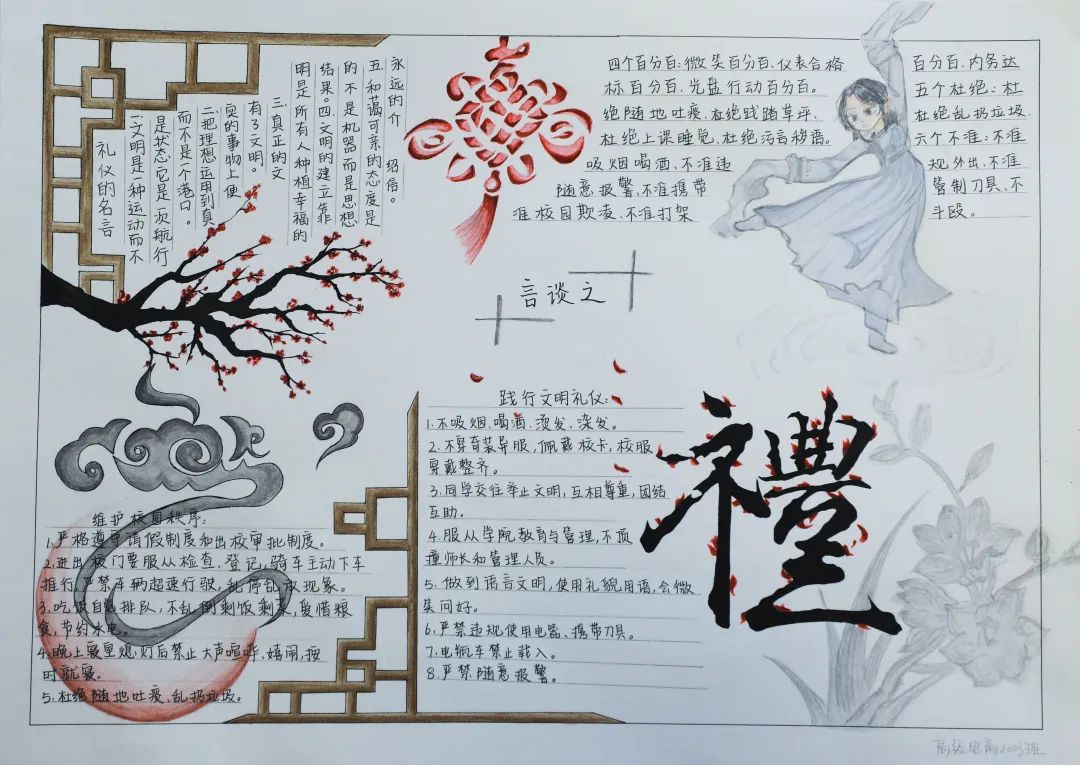 礼仪的名言
一.文明是一种运动而不
是状态,它是一次航行
而不是个港口。
二.把理想运用到真
实的事物上便
有了文明。
三.真正的文
明是所有人种植幸福的
结果。四.文明的建立靠
的不是机器而是思想
五.和蔼可亲的态度是
永远的介绍信。
四个百分百:微笑百分百、仪表合格百分百、内务达
标百分百、光盘行动百分百。五个杜绝:杜
绝随地吐痰、杜绝践踏草坪、杜绝乱扔垃圾、
杜绝上课睡觉、杜绝污言秽语。六个不准:不准
吸烟喝酒、不准违规外出、不准
随意报警、不准携带管制刀具、不
准校园欺凌、不准打架斗殴。
言谈之
践行文明礼仪:
1.不吸烟、喝酒、烫发、染发。
2.不穿奇装异服,佩戴校卡,校服
穿戴整齐。
3.同学交往举止文明,互相尊重,团结
互助。
4.服从学院教育与管理,不顶
撞师长和管理人员。
5.做到语言文明,使用礼貌用语,会微
笑问好。
6.严禁违规使用电器、携带刀具。
7.电瓶车禁止载人。
8.严禁随意报警。
禮
维护校园秩序:
1.严格遵守请假制度和出校审批制度。
2.进出校门要服从检查、登记,骑车主动下车
推行,严禁车辆超速行驶,乱停乱放现象。
3.吃饭自觉排队,不乱倒剩饭剩菜,爱惜粮
食,节约水电。
4.晚上寝室熄灯后禁止大声喧哗、嬉闹,按
时就寝。
5.杜绝随地吐痰、乱扔垃圾。
高级电商2003班